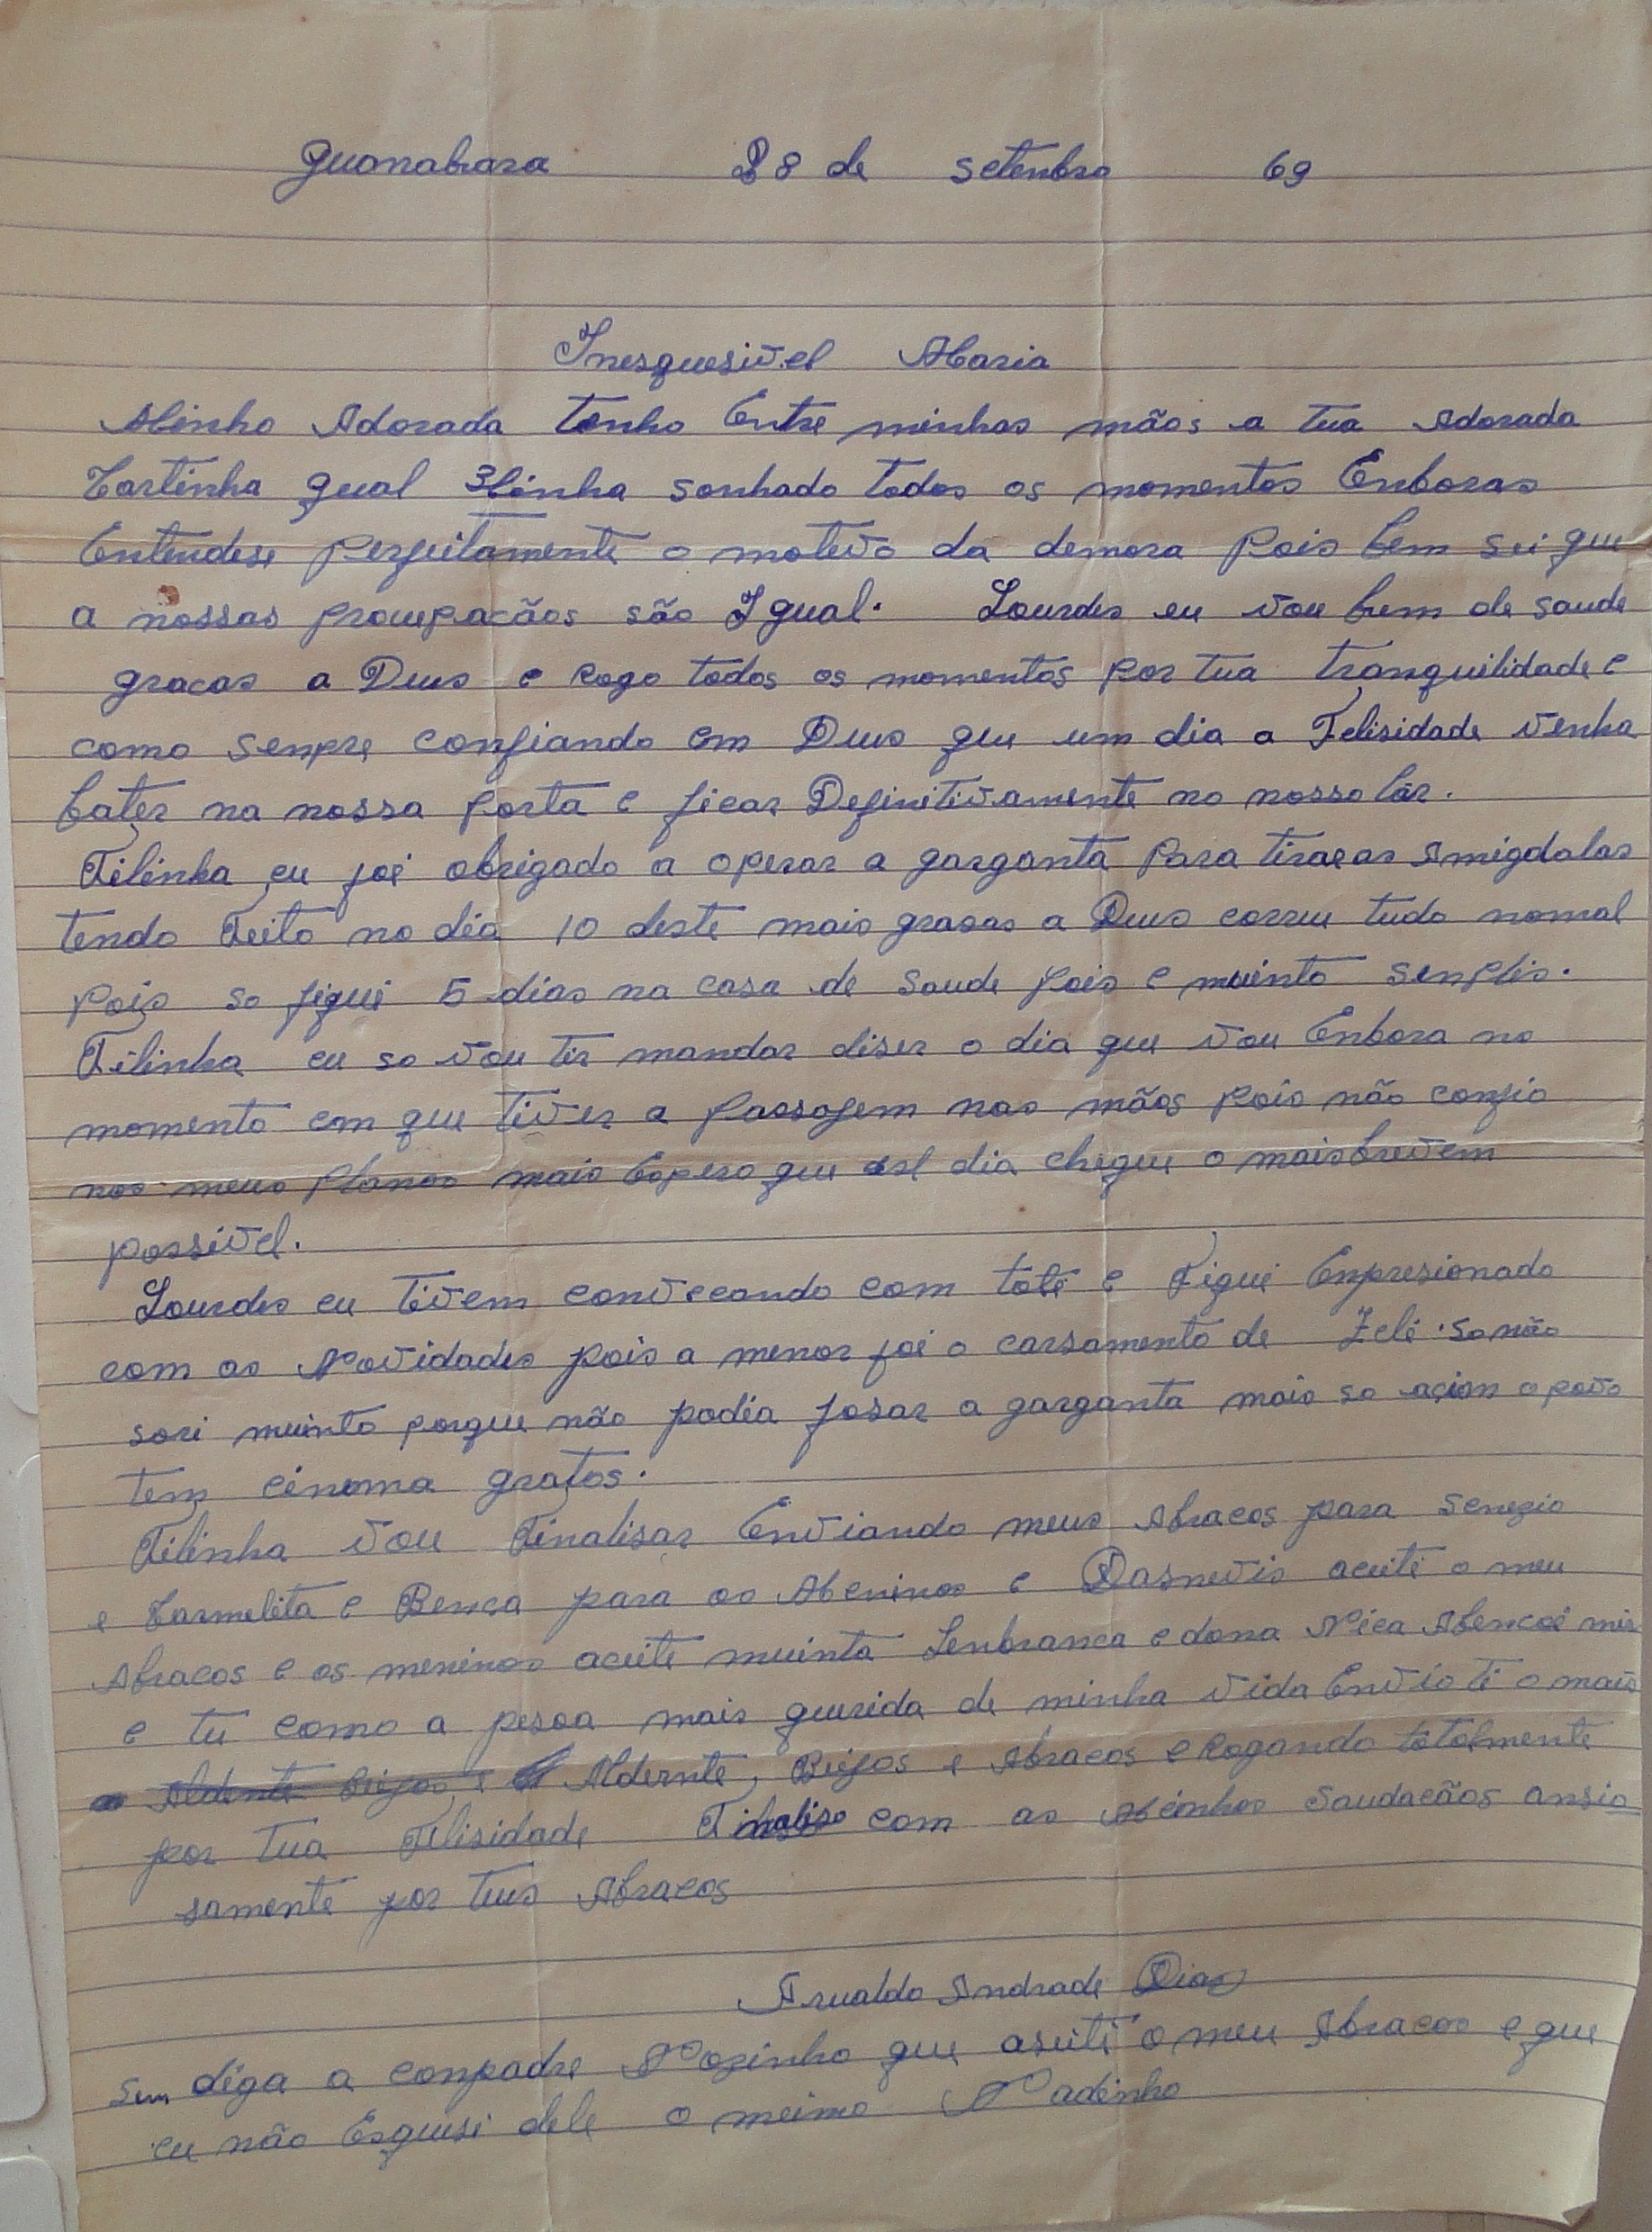 Guanabara 28 de setenbro 69
Inesquesivel Maria
Minha Adorada tenho Entre minhas mãos a tua Adorada
Cartinha qual tinha sonhado todos os momentos Enboras
Entendese perfeitamente o motivo da demora pois bem sei que
a nossas proucupacãos são Igual. Lourdes eu vou bem de saude
gracas a Deus e rogo todos os momentos por tua tranquilidade e
como senpre confiando em Deus que um dia a Felisidade venha
bater na nossa porta e ficar Definitivamente no nosso lár.
Filinha eu foi obrigado a operar a garganta para tirar as Amigdalas
tendo Feito no dia 10 deste mais grasas a Deus correu tudo nomal
pois so fiquei 5 dias na casa de saude pois e muinto senplis.
Filinha eu so vou tir mandar diser o dia que vou Enbora no
momento em que tiver a passagem nas mãos pois não confio
nos meus planos mais Espero que est dia chegue o mais brevem
possivel.
Lourdes eu tivem convecando com totê e Fiquei Enpresionado
com as Novidades pois a menor foi o carsamento de Zelé so não
sori muinto porque não podia fosar a garganta mais so acim o povo
tem cinema gratos.
Filinha vou Finalisar Enviando meus Abracos para
e Carmelita e Benca para os Meninos e Dasnevis aceite o meu
Abracos e os meninos aceite muinta Lenbranca e dona Nica Abencoé mir
e tu como a pesoa mais querida de minha vida Envio ti o mais
Aldente Biejos e Aldernte, Biejos e Abracos e rogando totalmente
por tua Felisidade Finaliso com as Minhas Saudacãos ansio
samente por teus Abracos
Arualdo Andrade Dias
Sem diga a conpadre Nozinho que aseite o meu Abracos e que
eu não Esquesi dele o meimo Nadinho